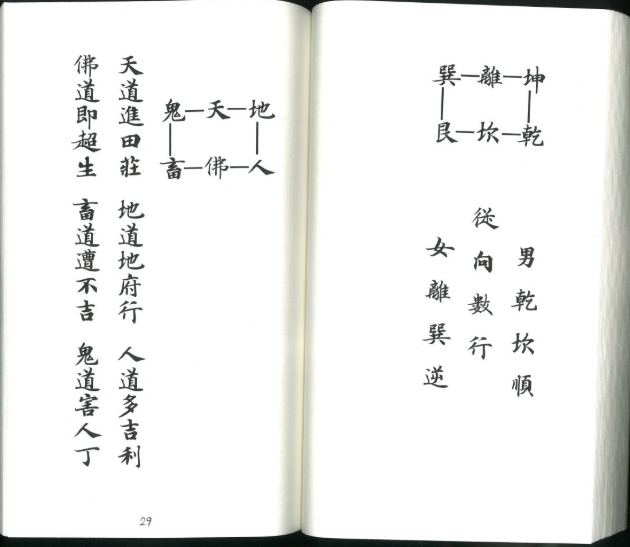 巽—離—坤
艮—坎—乾
男乾坎順
從向數行
女離巽逆
鬼—天—地
畜—佛—人
天道進田莊 地道地府行 人道多吉利
佛道即超生 畜道遭不吉 鬼道害人丁
29